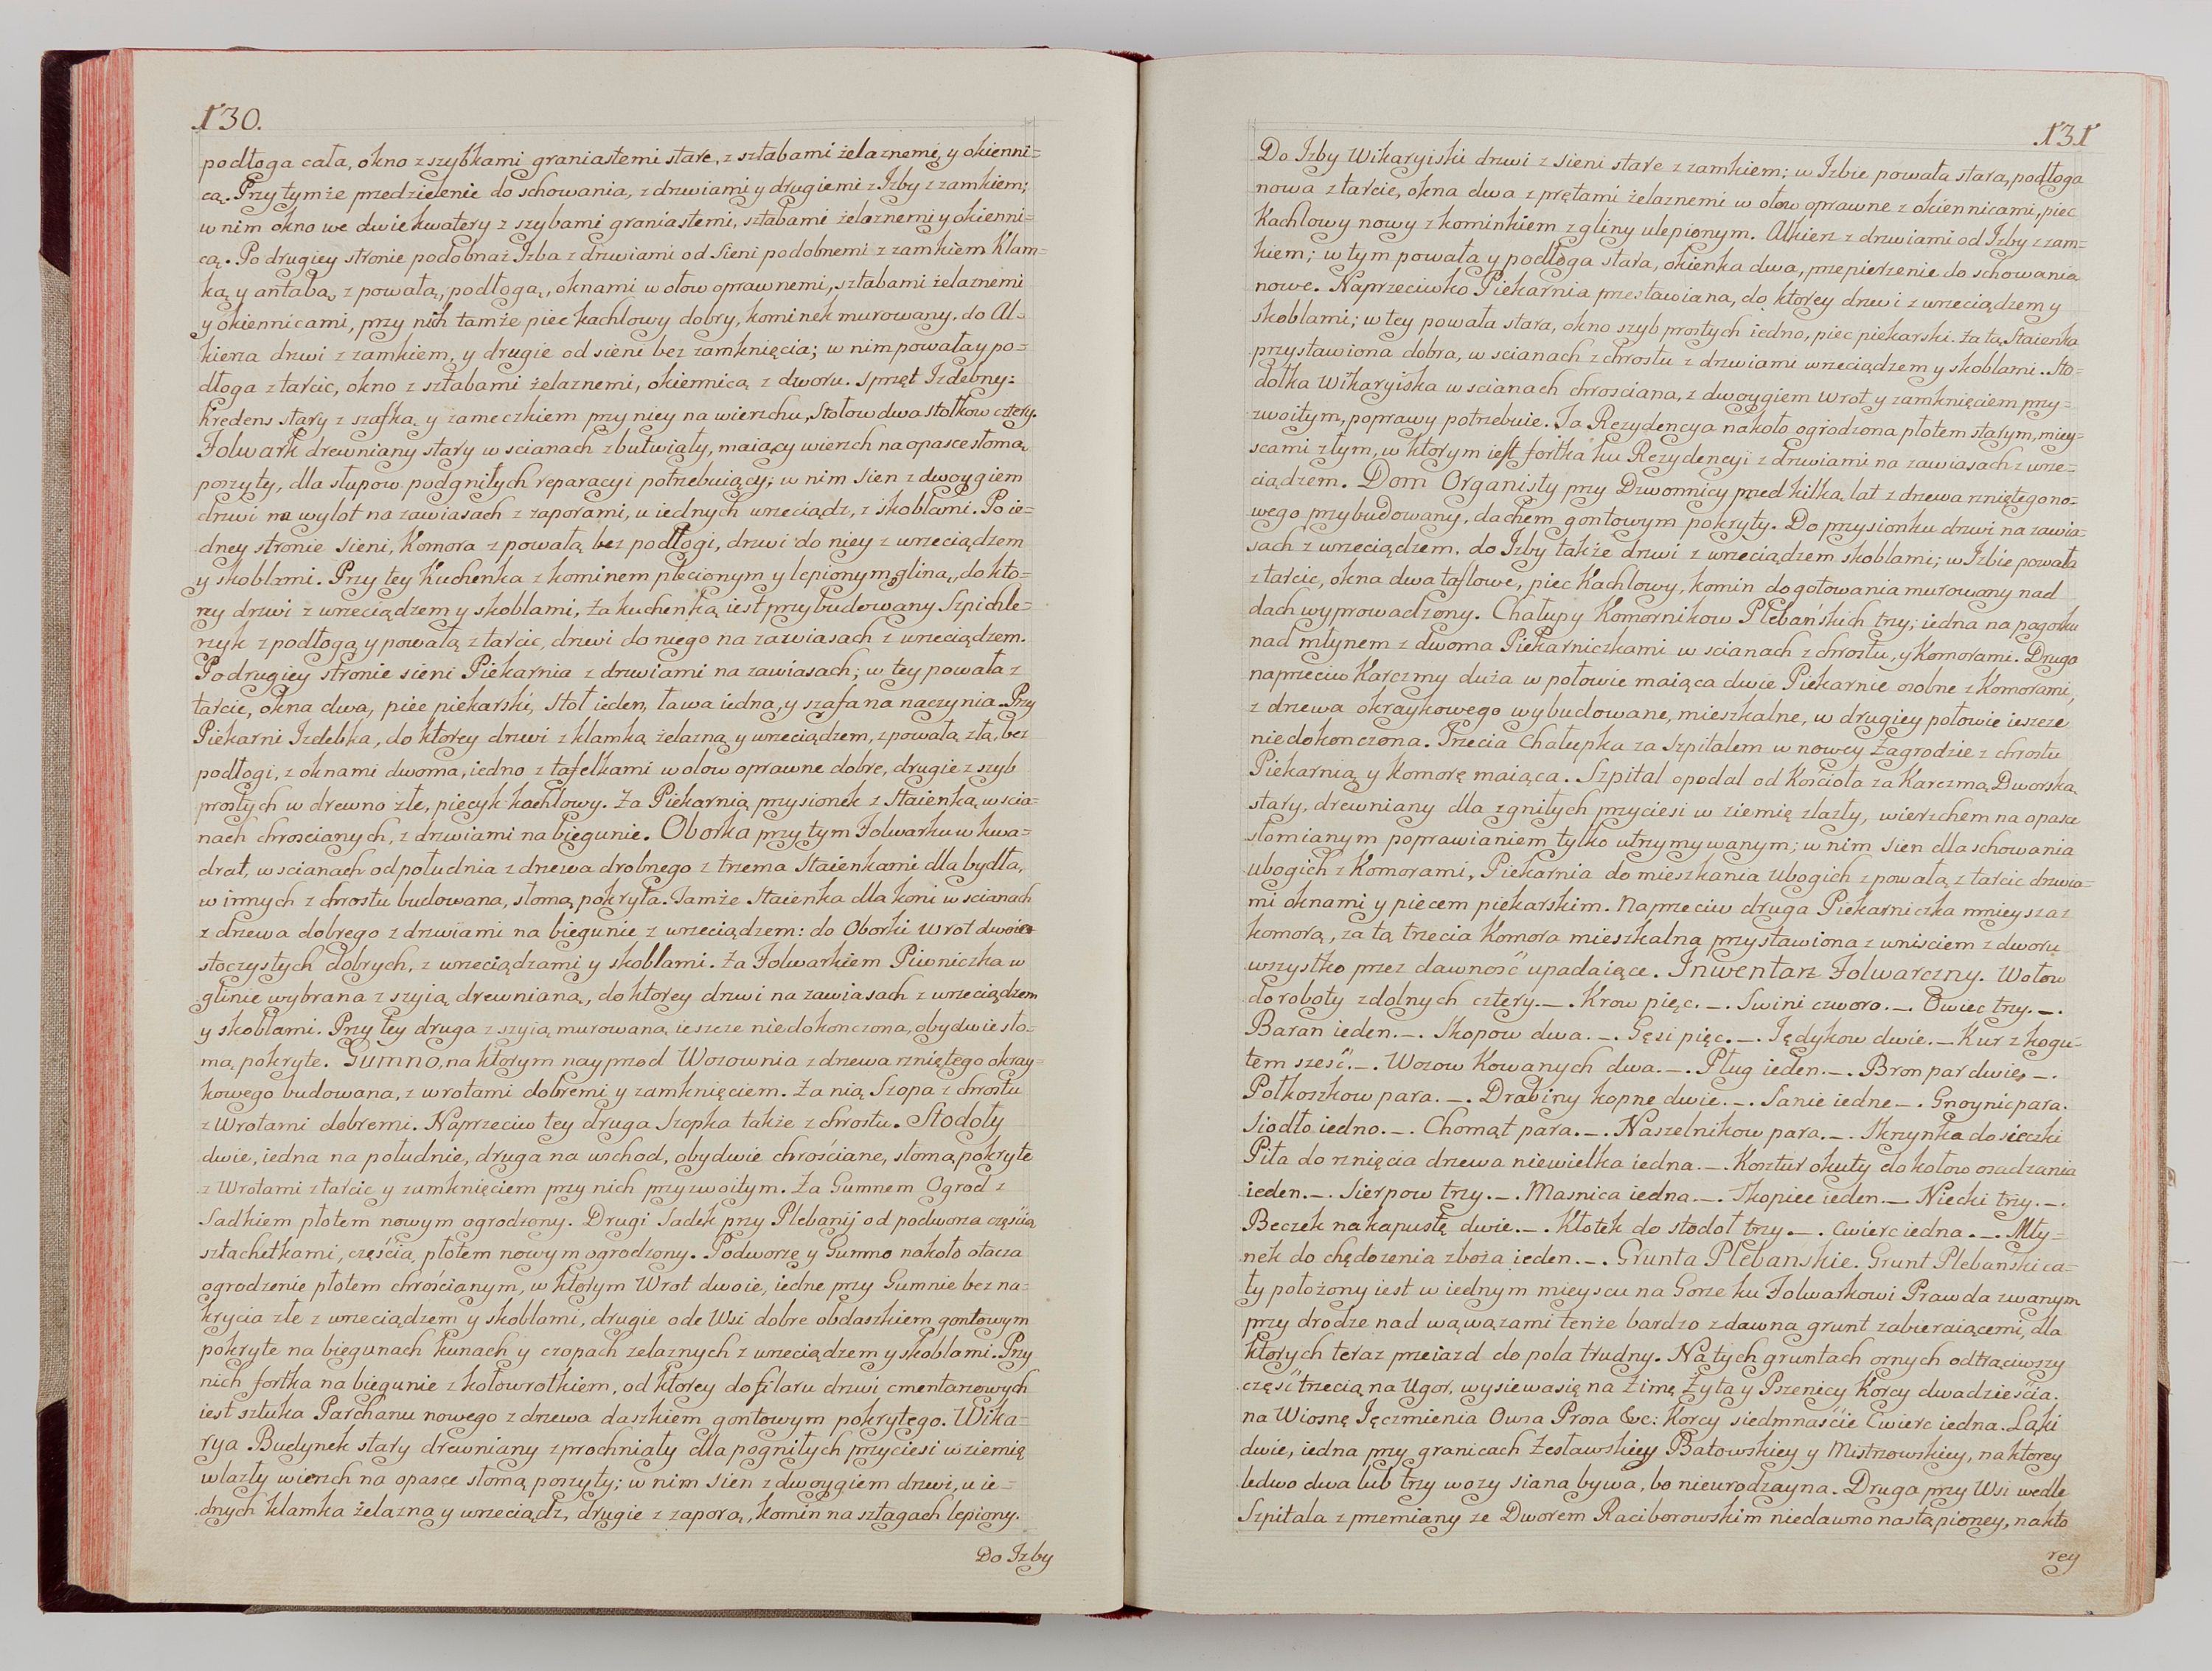 130.
podłoga cała, okno z szybkami graniastemi stare, z sztabami żelaznemi, y okienni=
cą. Przy tymże przedzielenie do schowania, z drzwiami y drugiemi z Izby z zamkiem;
w nim okno we dwie kwatery z szybami graniastemi, sztabami żelaznemi y okienni=
cą. Po drugiey stronie podobnaż Izba z drzwiami od Sieni podobnemi z zamkiem Klam=
ką y antabą, z powałą, podłogą, oknami w ołow oprawnemi, sztabami żelaznemi
y okiennicami, przy nich tamże piec kachlowy dobry, kominek murowany. do Al=
kierza drzwi z zamkiem, y drugie od sieni bez zamknięcia; w nim powała y po=
dłoga z tarcic, okno z sztabami żelaznemi, okiennicą z dworu. Sprzęt Izdebny:
Kredens stary z szafką y zameczkiem przy niey na wierzchu, Stołow dwa stołkow cztery.
Folwark drewniany stary w scianach zbutwiały, maiący wierzch na opasce słomą
poszyty, dla słupow podgniłych reparacyi potrzebuiący; w nim Sien z dwoygiem
drzwi na wylot na zawiasach z zaporami, u iednych wrzeciądz, z skoblami. Po ie=
dney stronie Sieni, Komora z powałą bez podłogi, drzwi do niey z wrzeciądzem
y skoblami. Przy tey Kuchenka z kominem plecionym y lepionym gliną, do kto=
rey drzwi z wrzeciądzem y skoblami, za kuchenką iest przybudowany Szpichle=
rzyk z podłogą y powałą z tarcic, drzwi do niego na zawiasach z wrzeciądzem.
Po drugiey stronie sieni Piekarnia z drzwiami na zawiasach; w tey powała z
tarcic, okna dwa, piec piekarski, Stoł ieden, ława iedna, y szafa na naczynia. Przy
Piekarni Izdebka, do ktorey drzwi z klamką żelazną y wrzeciądzem, z powałą złą, bez
podłogi, z oknami dwoma, iedno z tafelkami w ołow oprawne dobre, drugie z szyb
prostych w drewno złe, piecyk kachlowy. Za Piekarnią przysionek z Staienką w scia=
nach chroscianych, z drzwiami na biegunie. Oborka przy tym Folwarku w kwa=
drat, w scianach od południa z drzewa drobnego z trzema Staienkami dla bydła,
w innych z chrostu budowana, słomą pokryta. Tamże Staienka dla koni w scianach
z drzewa dobrego z drzwiami na biegunie z wrzeciądzem: do Oborki Wrot dwoie
stoczystych dobrych, z wrzeciądzami y skoblami. Za Folwarkiem Piwniczka w
glinie wybrana z szyią drewnianą, do ktorey drzwi na zawiasach z wrzeciądzem
y skoblami. Przy tey druga z szyią murowaną ieszcze niedokonczona, obydwie sło=
mą pokryte. Gumno, na ktorym nayprzod Wozownia z drzewa rzniętego okray=
kowego budowana, z wrotami dobremi y zamknięciem. Za nią Szopa z chrostu
z Wrotami dobremi. Naprzeciw tey druga Szopka także z chrostu. Stodoły
dwie, iedna na południe, druga na wschod, obydwie chrościane, słomą pokryte
z Wrotami z tarcic y zamknięciem przy nich przyzwoitym. Za Gumnem Ogrod z
Sadkiem płotem nowym ogrodzony. Drugi Sadek przy Plebanij od podworza częścią
sztachetkami, częścią płotem nowym ogrodzony. Podworze y Gumno nakoło otacza
ogrodzenie płotem chróścianym, w ktorym Wrot dwoie, iedne przy Gumnie bez na=
krycia złe z wrzeciądzem y skoblami, drugie ode Wsi dobre obdaszkiem gontowym
pokryte na biegunach kunach y czopach zelaznych z wrzeciądzem y skoblami. Przy
nich fortka na biegunie z kołowrotkiem, od ktorey do filaru drzwi cmentarzowych
iest sztuka Parchanu nowego z drzewa daszkiem gontowym pokrytego. Wika=
rya Budynek stary drewniany zprochniały dla pogniłych przyciesi w ziemię
wlazły wierzch na opasce słomą poszyty; w nim Sien z dwoygiem drzwi, u ie=
dnych klamka żelazna y wrzeciądz, drugie z zaporą, komin na sztagach lepiony.
Do Izby
131
Do Izby Wikaryiski drzwi z sieni stare z zamkiem; w Izbie powała stara, podłoga
nowa z tarcic, okna dwa z prętami żelaznemi w ołow oprawne z okiennicami, piec
Kachlowy nowy z kominkiem z gliny ulepionym. Alkierz z drzwiami od Izby z zam=
kiem; w tym powała y podłoga stara, okienka dwa, przepierzenie do schowania
nowe. Naprzeciwko Piekarnia przestawiana, do ktorey drzwi z wrzeciądzem y
skoblami; w tey powała stara, okno szyb prostych iedno, piec piekarski. Za tą Staienka
przystawiona dobra, w scianach z chrostu z drzwiami wrzeciądzem y skoblami. Sto=
dołka Wikaryiska w scianach chrosciana, z dwoygiem Wrot y zamknięciem przy=
zwoitym, poprawy potrzebuie. Ta Rezydencya nakoło ogrodzona płotem starym, miey=
scami złym, w ktorym iest fortka ku Rezydencyi z drzwiami na zawiasach z wrze=
ciądzem. Dom Organisty przy Dzwonnicy przed kilką lat z drzewa rzniętego no=
wego przybudowany, dachem gontowym pokryty. Do przysionku drzwi na zawia=
sach z wrzeciądzem. do Izby także drzwi z wrzeciądzem skoblami; w Izbie powała
z tarcic, okna dwa taflowe, piec Kachlowy, komin do gotowania murowany nad
dach wyprowadzony. Chałupy Komornikow Plebańskich trzy; iedna na pagorku
nad młynem z dwoma Piekarniczkami w scianach z chrostu, y Komorami. Druga
naprzeciw Karczmy duża w połowie maiąca dwie Piekarnie osobne z Komorami,
z drzewa okraykowego wybudowane, mieszkalne, w drugiey połowie ieszcze
niedokonczona. Trzecia Chałupka za Szpitalem w nowey Zagrodzie z chrostu
Piekarnią y Komorę maiąca. Szpital opodal od Kościoła za Karczmą Dworską
stary, drewniany dla zgniłych przyciesi w ziemię zlazły, wierzchem na opasce
słomianym poprawianiem tylko utrzymywanym; w nim Sien dla schowania
ubogich z Komorami, Piekarnia do mieszkania Ubogich z powałą z tarcic drzwia=
mi oknami y piecem piekarskim. Naprzeciw druga Piekarniczka mnieysza z
komorą, za tą trzecia Komora mieszkalna przystawiona z wnisciem z dworu
wszystko przez dawność upadaiące. Inwentarz Folwarczny. Wołow
do roboty zdolnych cztery._. Krow pięc._. Swini czworo._. Owiec trzy._.
Baran ieden._. Skopow dwa._. Gęsi pięc._. Jędykow dwie._ Kur z kogu=
tem sześć._. Wozow Kowanych dwa._. Pług ieden._. Bron par dwie,_.
Połkoszkow para._. Drabiny kopne dwie._. Sanie iedne_. Gnoynic para.
Siodło iedno._. Chomąt para._. Naszelnikow para._. Skrzynka do sieczki
Piła do rznięcia drzewa niewielka iedna._. Kosztur okuty do kołow osadzania
ieden._. Sierpow trzy._. Masnica iedna._. Skopiec ieden._ Niecki trzy._.
Beczek na kapustę dwie._. Kłotek do stodoł trzy._. Cwierc iedna._. Mły=
nek do chędożenia zboża ieden._. Grunta Plebanskie. Grunt Plebanski ca=
ły położony iest w iednym mieyscu na Gorze ku Folwarkowi Prawda zwanym
przy drodze nad wąwązami tenże bardzo zdawna grunt zabieraiącemi, dla
ktorych teraz przeiazd do pola trudny. Na tych gruntach ornych odtrąciwszy
część trzecią na Ugor, wysiewa się na Zimę Żyta y Pszenicy Korcy dwadzieścia.
na Wiosnę Jęczmienia Owsa Prosa &c: Korcy siedmnaście Cwierc iedna. Łąki
dwie, iedna przy granicach Zesławskiey Batowskiey y Mistrzowskiey, na ktorey
ledwo dwa lub trzy wozy siana bywa, bo nieurodzayna. Druga przy Wsi wedle
Szpitala z przemiany ze Dworem Raciborowskim niedawno nastąpioney, na kto
rey